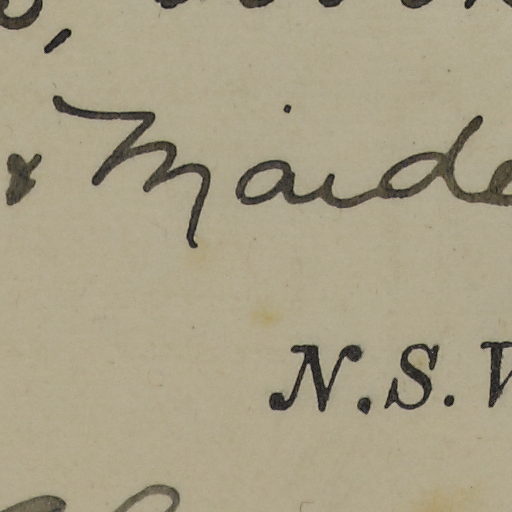 & Maide
N.S.W